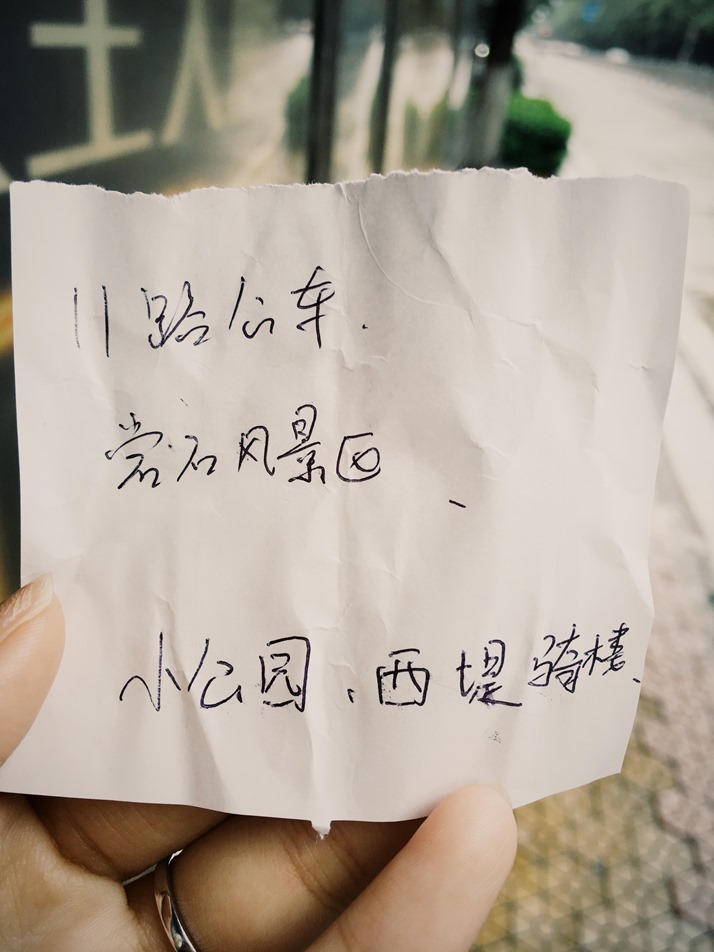 11路公车.
𬒈石风景区、
小公园、西堤骑楼、